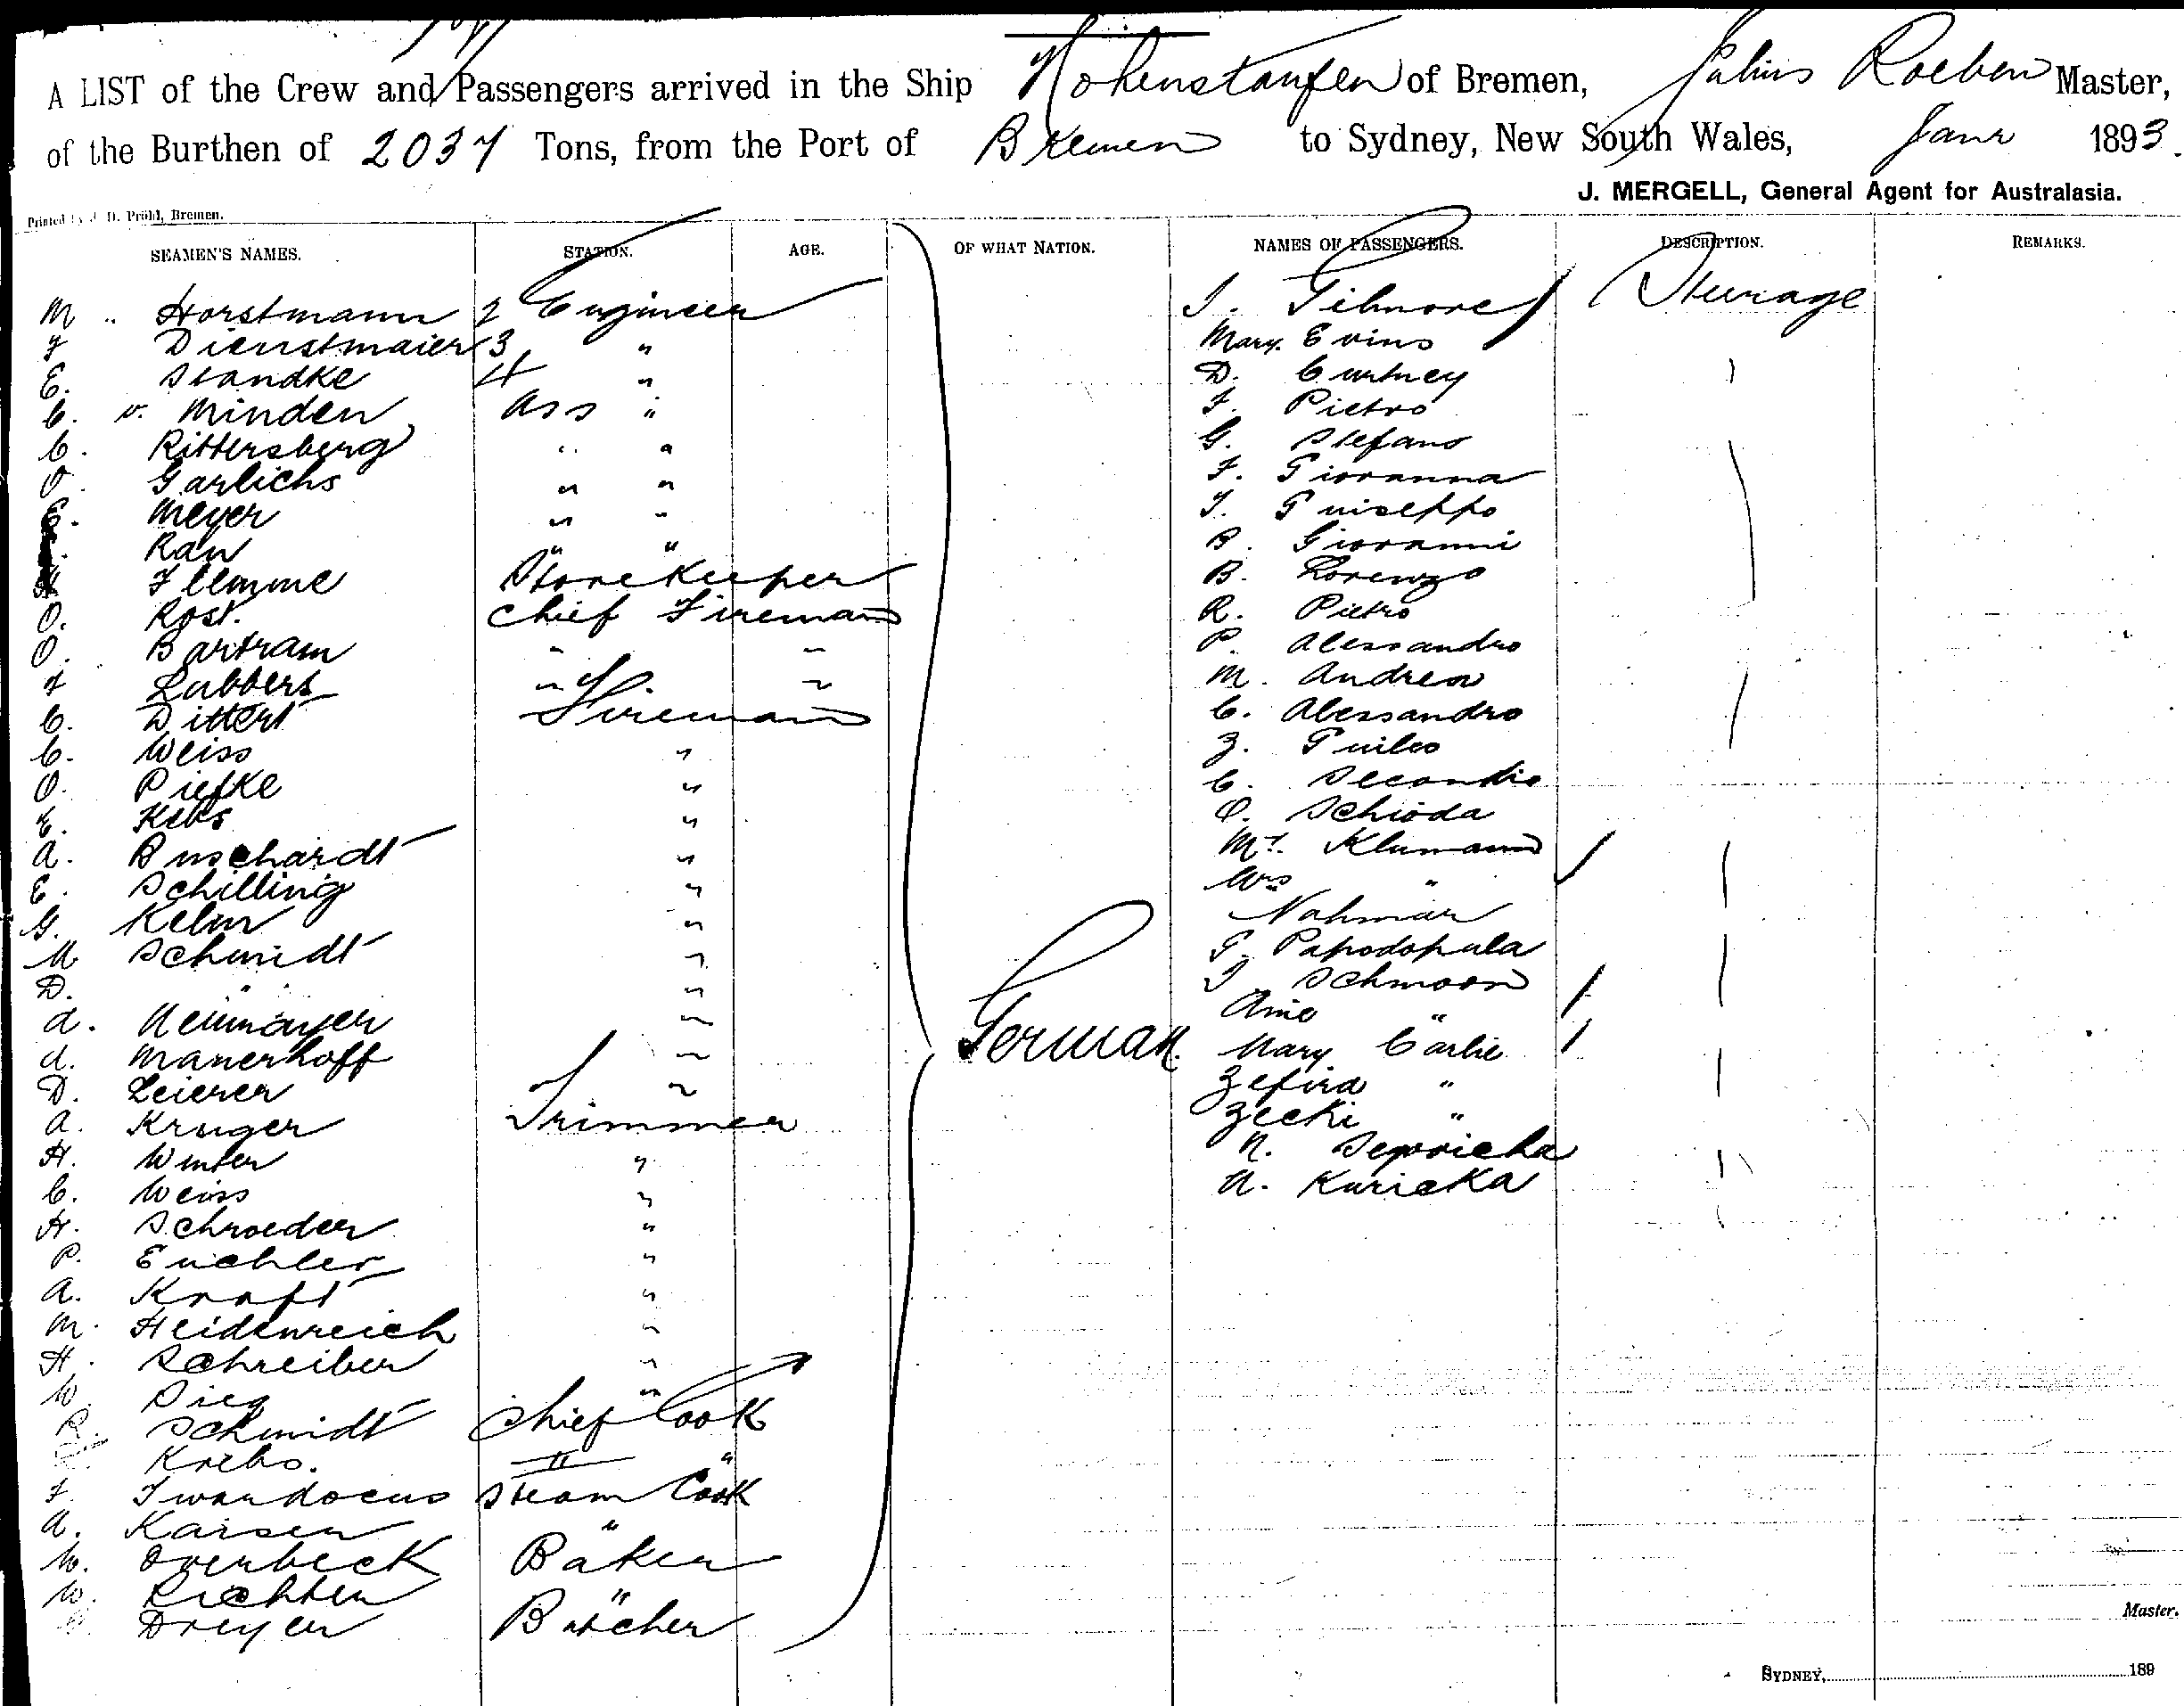 A LIST of the Crew and Passengers arrived in the Ship Hohenstaufen of Bremen, Julius Roeben Master,
of the Burthen of 2037 Tons, from the Port of Bremen to Sydney, New South Wales, Janr 1893.
J. MERGELL, General Agent for Australasia.
Printed by J. D. Pröhl, Bremen.
SEAMEN'S NAMES. STATION. AGE. OF WHAT NATION. NAMES OF PASSENGERS. DESCRIPTION. REMARKS.
M. Horstmann 2 Engineer
Dienstmaier 3 "
E. Standke 4 "
C. v. Minden Ass "
C. Rittersberg " "
O. Garlichs " "
E. Meyer " "
Rau " "
Flemme Storekeeper
O. Rost. Chief Fireman
O. Bartram " "
Lubbers " "
C. Dittert Fireman
C. Weiss "
O. Piefke "
E. Kebs "
A. Buschardt "
E. Schilling "
G. Kelm "
M. Schmidt "
D. " "
A. Neumayer "
A. Manerhoff "
D. Leierer "
A. Kruger Trimmer
H. Winter "
C. Weiss "
H. Schroeder "
P. Euchler "
A. Kraft "
M. Heidenreich "
H. Schreiber "
W. Sieg "
R. Schmidt Chief Cook
Krebs. II "
F. Twardocus Steam Cook
A. Kaiser "
W. Overbeck Baker
W. Richter "
Dreyer Butcher
German.
J. Gilmore Steerage
Mary Evins
D. Curtney
F. Pietro
G. Stefano
F. Giovanna
J. Guiseppo
B. Giovanni
B. Lorenzo
R. Pietro
P. Alessandro
M. Andrea
C. Alessandro
Z. Guileo
C. Secondio
O. Schioda
Mr. Klumann
Mrs "
Nahmar
G. Papodopula
J. Schmoor
Aine "
Mary Carlie
Zefira "
Zecki "
N.
A. Kuricka
Master.
SYDNEY, 189